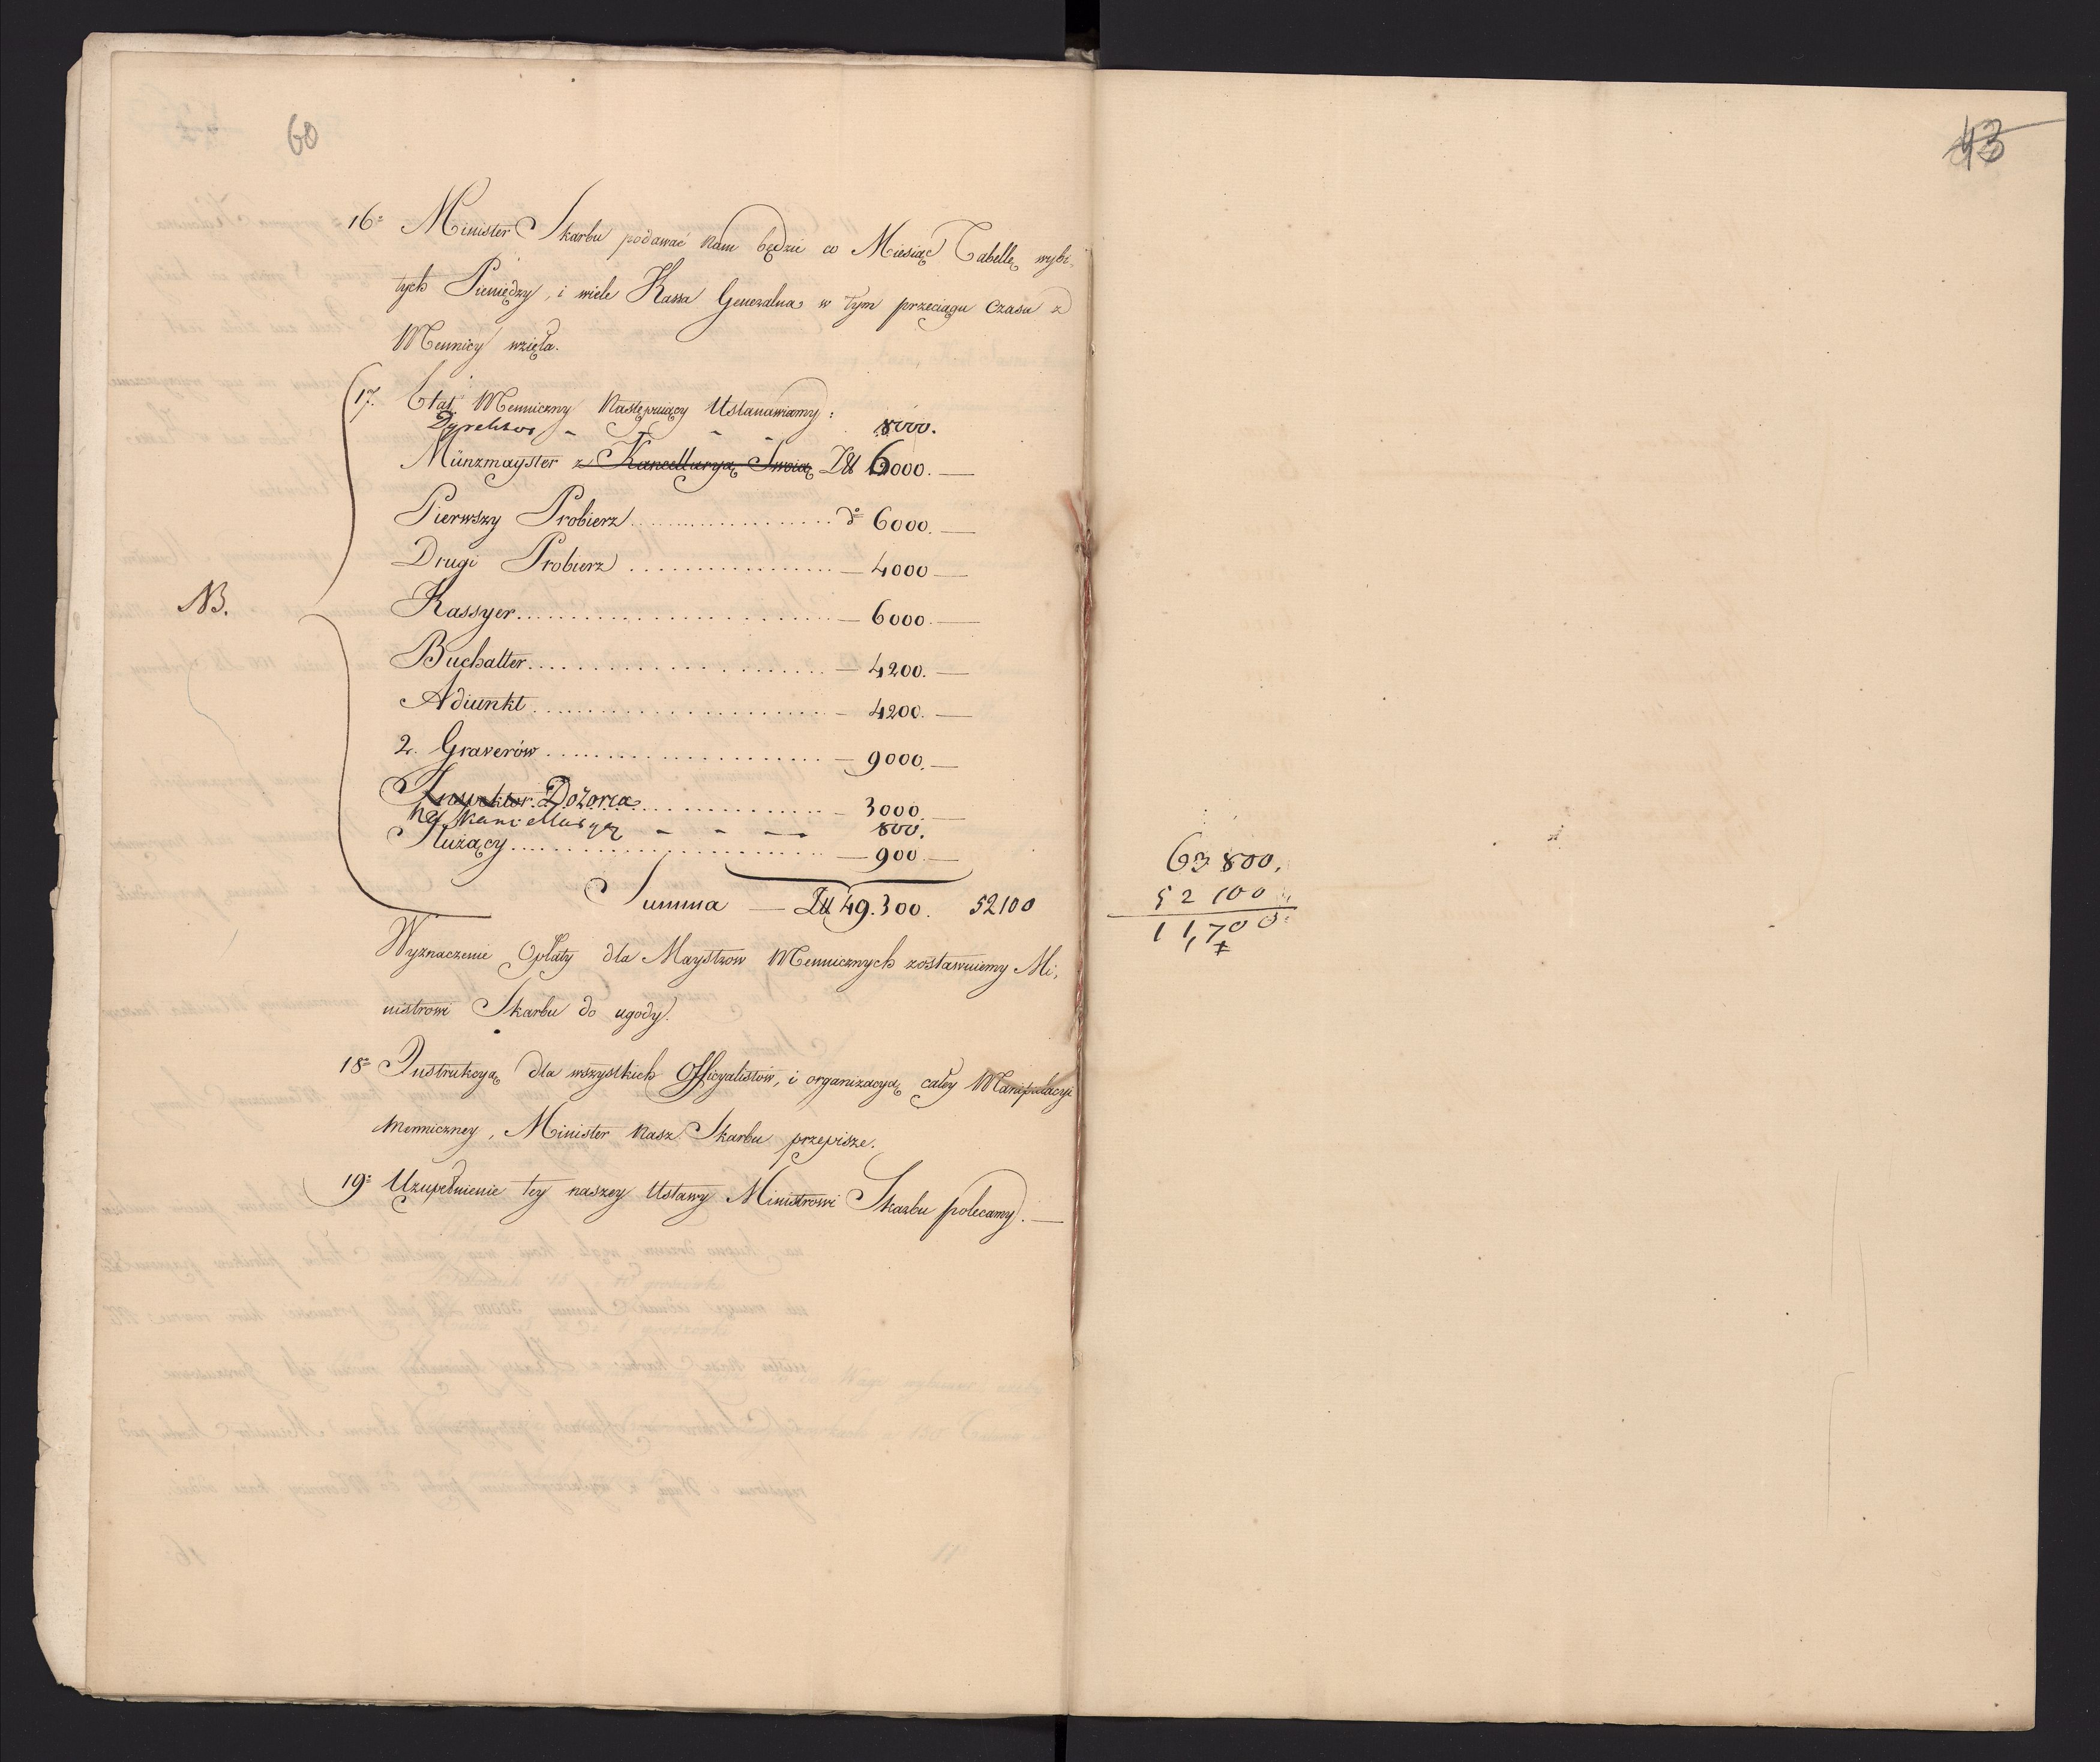 60
16º Minister Skarbu podawać nam będzie co Miesiąc Tabellę wybi,
tych Pieniędzy, i wiele Kassa Generalna w tym przeciągu czasu z
Mennicy wzięła.
17. Etat Menniczny następuiący Ustanawiamy:
Dyrektor - - - - 8000.
Münzmayster z Kancellaryą Swoią Zll 6000. —
Pierwszy Probierz ........ dº 6000. —
Drugi Probierz ........ — 4000 —
NB. Kassyer ........ — 6000. —
Buchalter ........ — 4200. —
Adiunkt ........ — 4200. —
2. Graverów ........ — 9000. —
Inspektor. Dozorca ........ — 3000. —
na Kancellaryą - - — 800.
Służący ........ — 900 —
Summa — Zll 49.300. 52100
Wyznaczenie Opłaty dla Maystrow Mennicznych zostawuiemy Mi,
nistrowi Skarbu do ugody.
18º Instrukcyą dla wszystkich Officyalistów, i organizacyą całey Manipulacyi
Menniczney, Minister nasz Skarbu przepisze.
19º Uzupełnienie tey naszey Ustawy Ministrowi Skarbu polecamy. —
43
63 800.
52 100
11,700